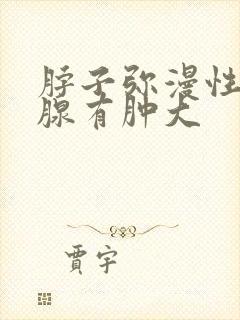 脖子弥漫性
腺有肿大
贾宇